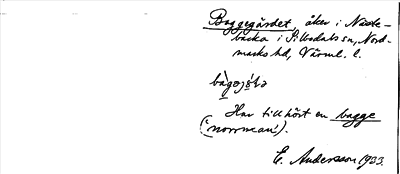 Baggegärdet, åker i Näste-
backa i S. Usdals sn, Nord-
marks hd, Värml. l.
Har tillhört en bagge
('norrman').
E. Andersson 1933.